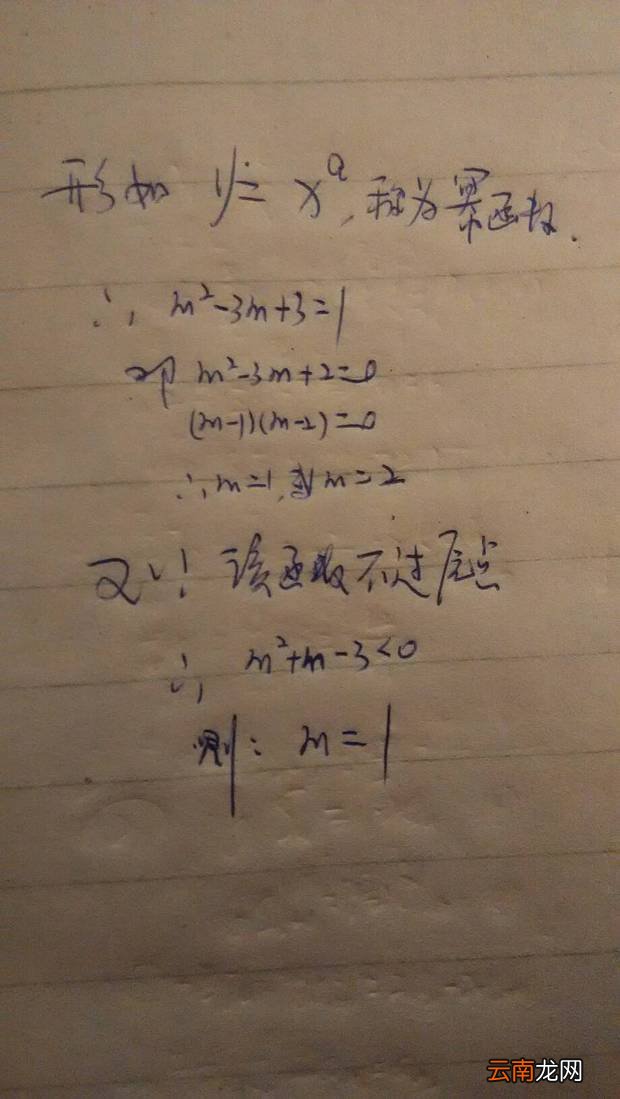 形如 y=x^a,称为幂函数.
∴ m²-3m+3=1
即 m²-3m+2=0
(m-1)(m-2)=0
∴m=1,或m=2
又∵ 该函数不过原点
∴ m²+m-3<0
则: m=1
云南龙网